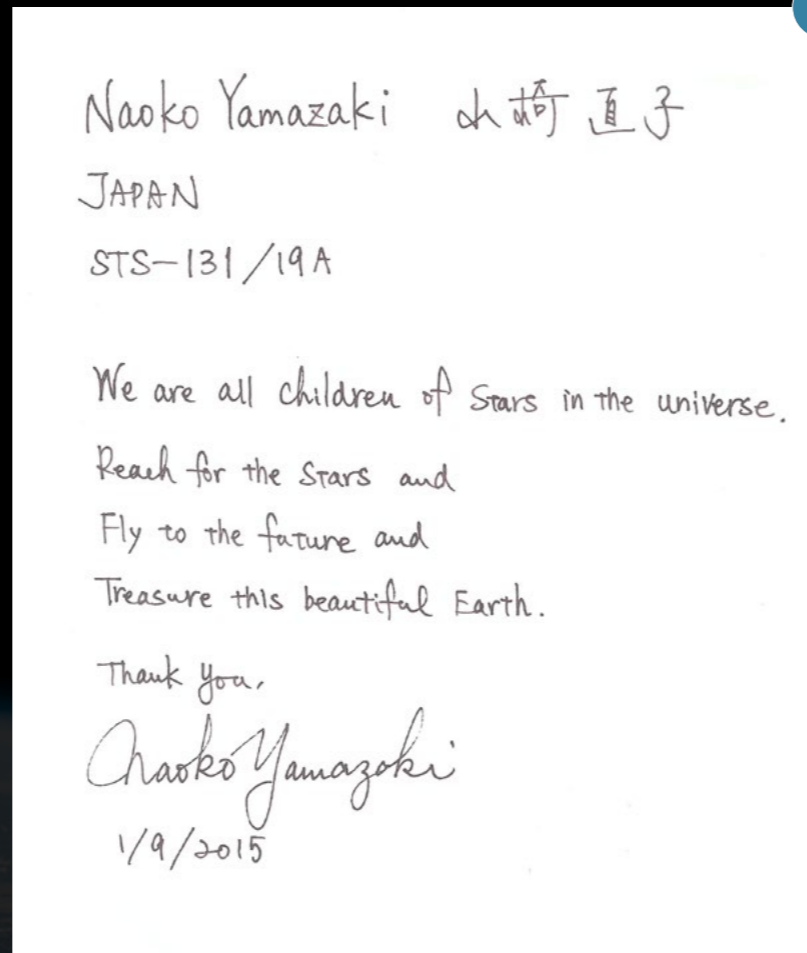 Naoko Yamazaki 山崎直子
JAPAN
STS-131/19A
We are all children of Stars in the universe.
Reach for the Stars and
Fly to the future and
Treasure this beautiful Earth.
Thank you,
Naoko Yamazaki
1/9/2015